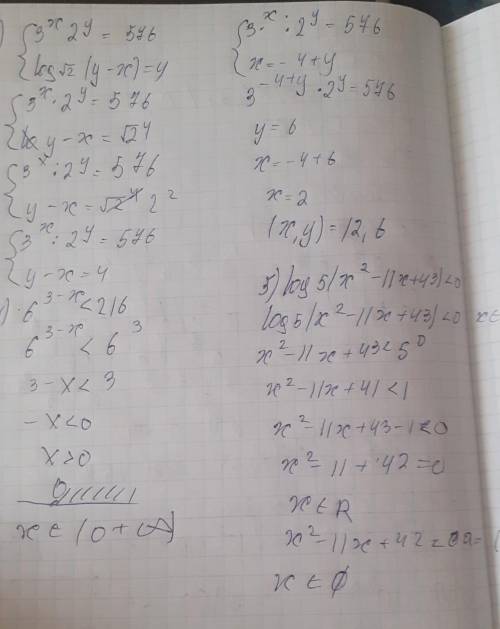 ) { 3^x 2^y = 576
{ log√2 (y-x) = 4
{ 3^x · 2^y = 576
{ y-x = √2^4
{ 3^x : 2^y = 576
{ y-x = √2^4 2^2
{ 3^x : 2^y = 576
{ y-x = 4
) 6^3-x < 216
6^3-x < 6^3
3-x < 3
-x < 0
x > 0
x ∈ (0 + ∞)
{ 3^x : 2^y = 576
{ x = -4+y
3^-4+y · 2^y = 576
y = 6
x = -4+6
x = 2
(x, y) = (2, 6
5) log 5(x^2 - 11x + 43) < 0
log 5(x^2 - 11x + 43) < 0 x ∈
x^2 - 11x + 43 < 5^0
x^2 - 11x + 41 < 1
x^2 - 11x + 43 - 1 < 0
x^2 - 11 + 42 = 0
x ∈ R
x^2 - 11x + 42 =
x ∈ ∅